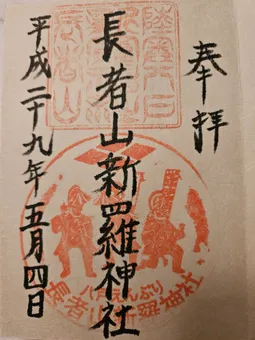 奉拝
長者山新羅神社
平成二十九年五月四日
八戸えんぶり
長者山新羅神社